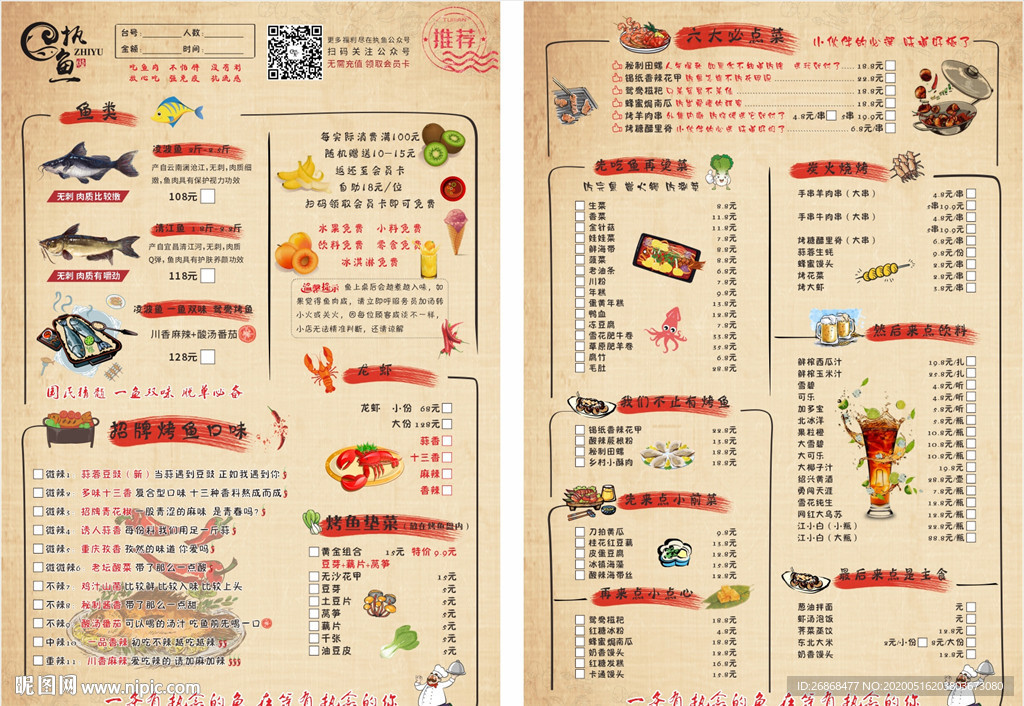 执鱼
ZHIYU
台号: 人数:
金额: 时间:
更多福利尽在执鱼公众号
扫码关注公众号
无需充值 领取会员卡
推荐
鱼类
产自云南澜沧江,无刺,肉质细
嫩,鱼肉具有保护视力功效
无刺 肉质比较嫩
108元
产自宜昌清江河,无刺,肉质
Q弹,鱼肉具有护肤养颜功效
无刺 肉质有嚼劲
118元
凌波鱼 一鱼双味 鸳鸯烤鱼
川香麻辣+酸汤番茄
128元
每实际消费满100元
随机赠送10-15元
返还至会员卡
自助18元/位
扫码领取会员卡即可免费
水果免费 小料免费
饮料免费 零食免费
冰淇淋免费
温馨提示 鱼上桌后会越煮越入味,如
果觉得鱼肉咸,请立即呼服务员加汤转
小火或关火,因每位顾客咸淡不一样,
小店无法精准判断,还请谅解
龙虾
龙虾 小份 68元
大份 128元
蒜香
十三香
麻辣
香辣
招牌烤鱼口味
微辣1 蒜蓉豆豉(新)当蒜遇到豆豉 正如我遇到你
微辣2 多味十三香 复合型口味 十三种香料熬成而成
微辣3 招牌青花椒 一股青涩的麻味 是青春吗?
微辣4 诱人蒜香 每份料我们用足一斤蒜
微辣5 重庆孜香 孜然的味道 你爱吗
微微辣6 老坛酸菜 带了那么一点酸
不辣7 鸡汁山菌 比较鲜 比较入味 比较上头
不辣8 秘制酱香 带了那么一点甜
不辣9 酸汤番茄 可以喝的汤汁 吃鱼前先喝一口
中辣10 一品香辣 初吃不辣越吃越辣
重辣11 川香麻辣 爱吃辣的 请加麻加辣
烤鱼垫菜(放在烤鱼盘内)
黄金组合 15元 特价9.9元
豆芽+藕片+莴笋
无沙花甲 5元
豆芽 5元
土豆片 5元
莴笋 5元
藕片 5元
千张 5元
油豆皮 5元
一条有执念的鱼 在等有执念的你
六大必点菜
小伙伴的必选 味道好极了
秘制田螺 18.8元
锡纸香辣花甲 22.8元
鸳鸯糍粑 18.8元
蜂蜜焗南瓜 18.8元
烤羊肉串 4.8元/串 5串19.9元
烤糖醋里脊 6.8元/串
先吃鱼再烫菜
生菜 8.8元
香菜 11.8元
金针菇 11.8元
娃娃菜 9.8元
鲜海带 8.8元
菠菜 8.8元
老油条 6.8元
川粉 7.8元
年糕 9.8元
儂黄年糕 13.8元
鸭血 19.8元
冻豆腐 7.8元
雪花肥牛卷 33.8元
草原肥羊卷 35.8元
腐竹 6.8元
毛肚 28.8元
炭火烧烤
手串羊肉串(大串) 4.8元/串
5串19.9元
手串牛肉串(大串) 4.8元/串
5串19.9元
烤糖醋里脊(大串) 6.8元/串
蒜蓉生蚝 9.8元/份
蜂蜜馒头 2.8元/串
烤花菜 2.8元/串
烤大虾 3.8元/串
我们不止有烤鱼
锡纸香辣花甲 22.8元
酸辣蕨根粉 13.8元
秘制田螺 18.8元
乡村小酥肉 18.8元
先来点小前菜
刀拍黄瓜 9.8元
桂花红豆藕 13.8元
皮蛋豆腐 12.8元
冰镇海藻 15.8元
酸辣海带丝 12.8元
再来点小点心
鸳鸯糍粑 18.8元
红糖冰粉 4.8元
蜂蜜焗南瓜 18.8元
奶香馒头 12.8元
红糖发糕 16.8元
卡通馒头 13.8元
然后来点饮料
鲜榨西瓜汁 19.8元/扎
鲜榨玉米汁 25.8元/扎
雪碧 4.8元/听
可乐 4.8元/听
加多宝 5.8元/听
北冰洋 5.8元/瓶
果粒橙 10.8元/瓶
大雪碧 10.8元/瓶
大可乐 10.8元/瓶
大椰子汁 19.8元
绍兴黄酒 28.8元/壶
勇闯天涯 7.8元/瓶
雪花纯生 12.8元/瓶
网红大乌苏 12.8元/瓶
江小白(小瓶) 22.8元/瓶
江小白(大瓶) 88.8元/瓶
最后来点是主食
葱油拌面 元
虾汤泡饭 元
荠菜蒸饺 12.8元
东北大米 2元/小份 8元/大份
奶香馒头 12.8元
一条有执念的鱼 在等有执念的你
昵图网 www.nipic.com
ID:26868477 NO:20200516203803673080